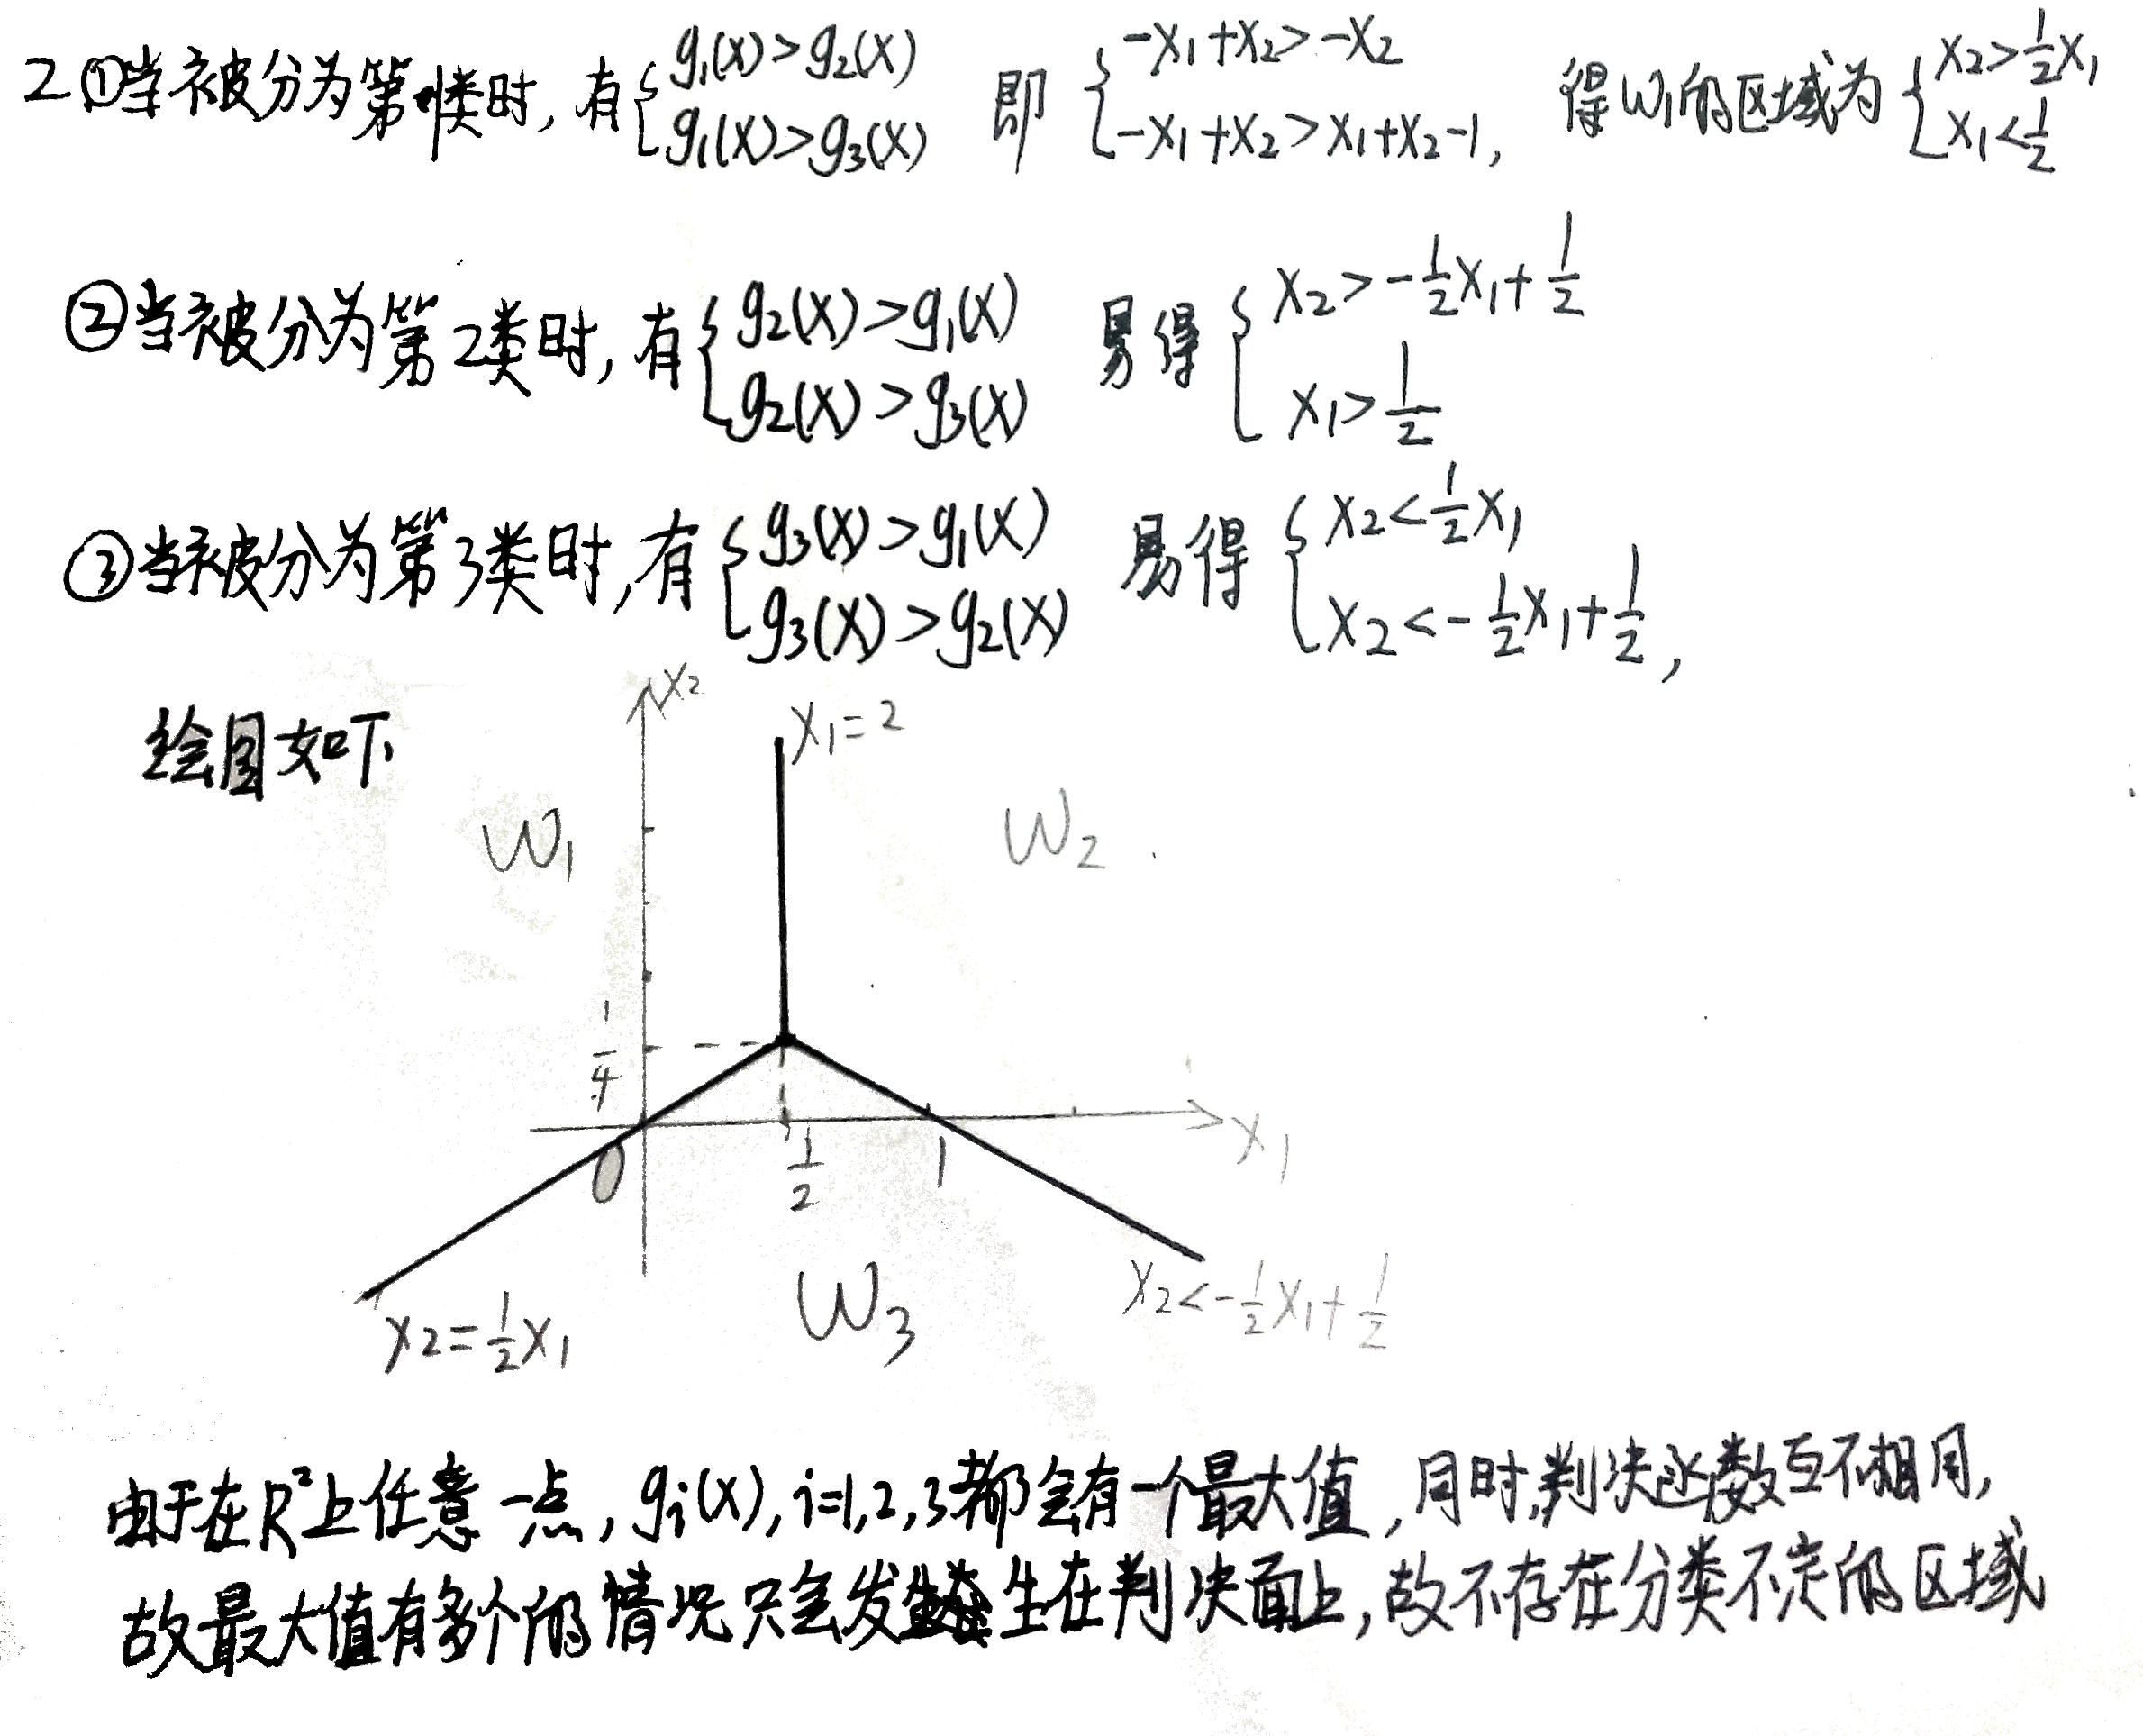 2 ①当x被分为第1类时, 有 { g₁(x)>g₂(x) g₁(x)>g₃(x) 即 { -x₁+x₂>-x₂ -x₁+x₂>x₁+x₂-1, 得W₁的区域为 { x₂>½x₁ x₁<½
②当x被分为第2类时, 有 { g₂(x)>g₁(x) g₂(x)>g₃(x) 易得 { x₂>-½x₁+½ x₁>½
③当x被分为第3类时, 有 { g₃(x)>g₁(x) g₃(x)>g₂(x) 易得 { x₂<½x₁ x₂<-½x₁+½,
绘图如下
x₂
x₁=2
W₁
W₂
1/4
x₁
0
1/2
1
W₃
x₂=½x₁
x₂<-½x₁+½
由于在R²上任意一点, gᵢ(x), i=1,2,3都会有一个最大值, 同时,判决函数互不相同,
故最大值有多个的情况只会发生在判决面上, 故不存在分类不定的区域